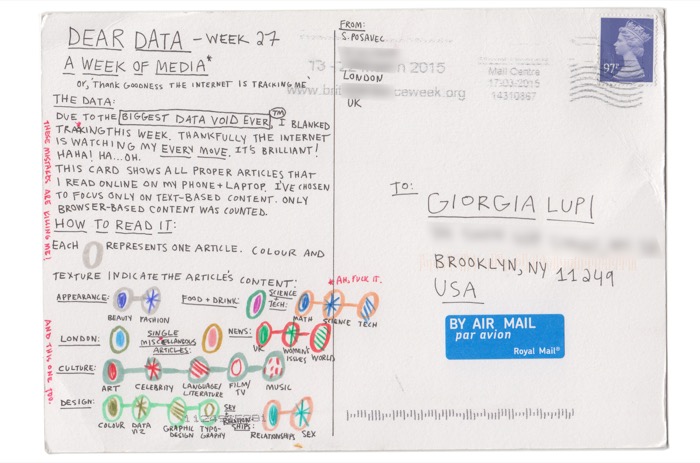 DEAR DATA - WEEK 27
A WEEK OF MEDIA*
OR, 'THANK GOODNESS THE INTERNET IS TRACKING ME'
THE DATA:
DUE TO THE BIGGEST DATA VOID EVER, TM I BLANKED
TRACKING THIS WEEK. THANKFULLY THE INTERNET
IS WATCHING MY EVERY MOVE. IT'S BRILLIANT!
HAHA! HA...OH.
THIS CARD SHOWS ALL PROPER ARTICLES THAT
I READ ONLINE ON MY PHONE + LAPTOP. I'VE CHOSEN
TO FOCUS ONLY ON TEXT-BASED CONTENT. ONLY
BROWSER-BASED CONTENT WAS COUNTED.
HOW TO READ IT:
EACH REPRESENTS ONE ARTICLE. COLOUR AND
TEXTURE INDICATE THE ARTICLE'S CONTENT:
* AH, FUCK IT.
APPEARANCE:
BEAUTY FASHION
FOOD + DRINK:
SCIENCE + TECH:
MATH SCIENCE TECH
LONDON:
SINGLE MISCELLANEOUS ARTICLES:
NEWS:
UK WOMEN'S ISSUES WORLD
CULTURE:
ART CELEBRITY LANGUAGE/LITERATURE FILM/TV MUSIC
DESIGN:
COLOUR DATA VIZ GRAPHIC DESIGN TYPOGRAPHY
SEX + RELATIONSHIPS:
RELATIONSHIPS SEX
THESE MISTAKES ARE KILLING ME!
AND THIS ONE, TOO.
FROM:
S. POSAVEC
LONDON
UK
2015
Mail Centre
17/03/2015
14310867
97P
TO:
GIORGIA LUPI
BROOKLYN, NY 11249
USA
BY AIR MAIL
par avion
Royal Mail®